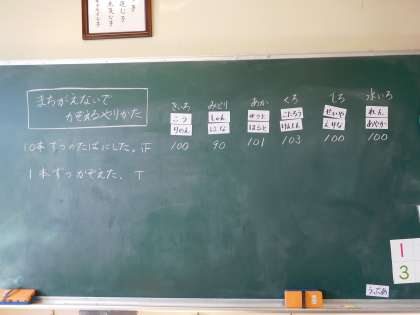 まちがえないで
かぞえるやりかた
きいろ みどり あか くろ しろ 水いろ
こう しゅん こたろう せいや れん
りのん にーな はると けんしん えりな あやか
10本ずつのたばにした。正 100 90 101 103 100 100
1本ずつかぞえた。T
1
3